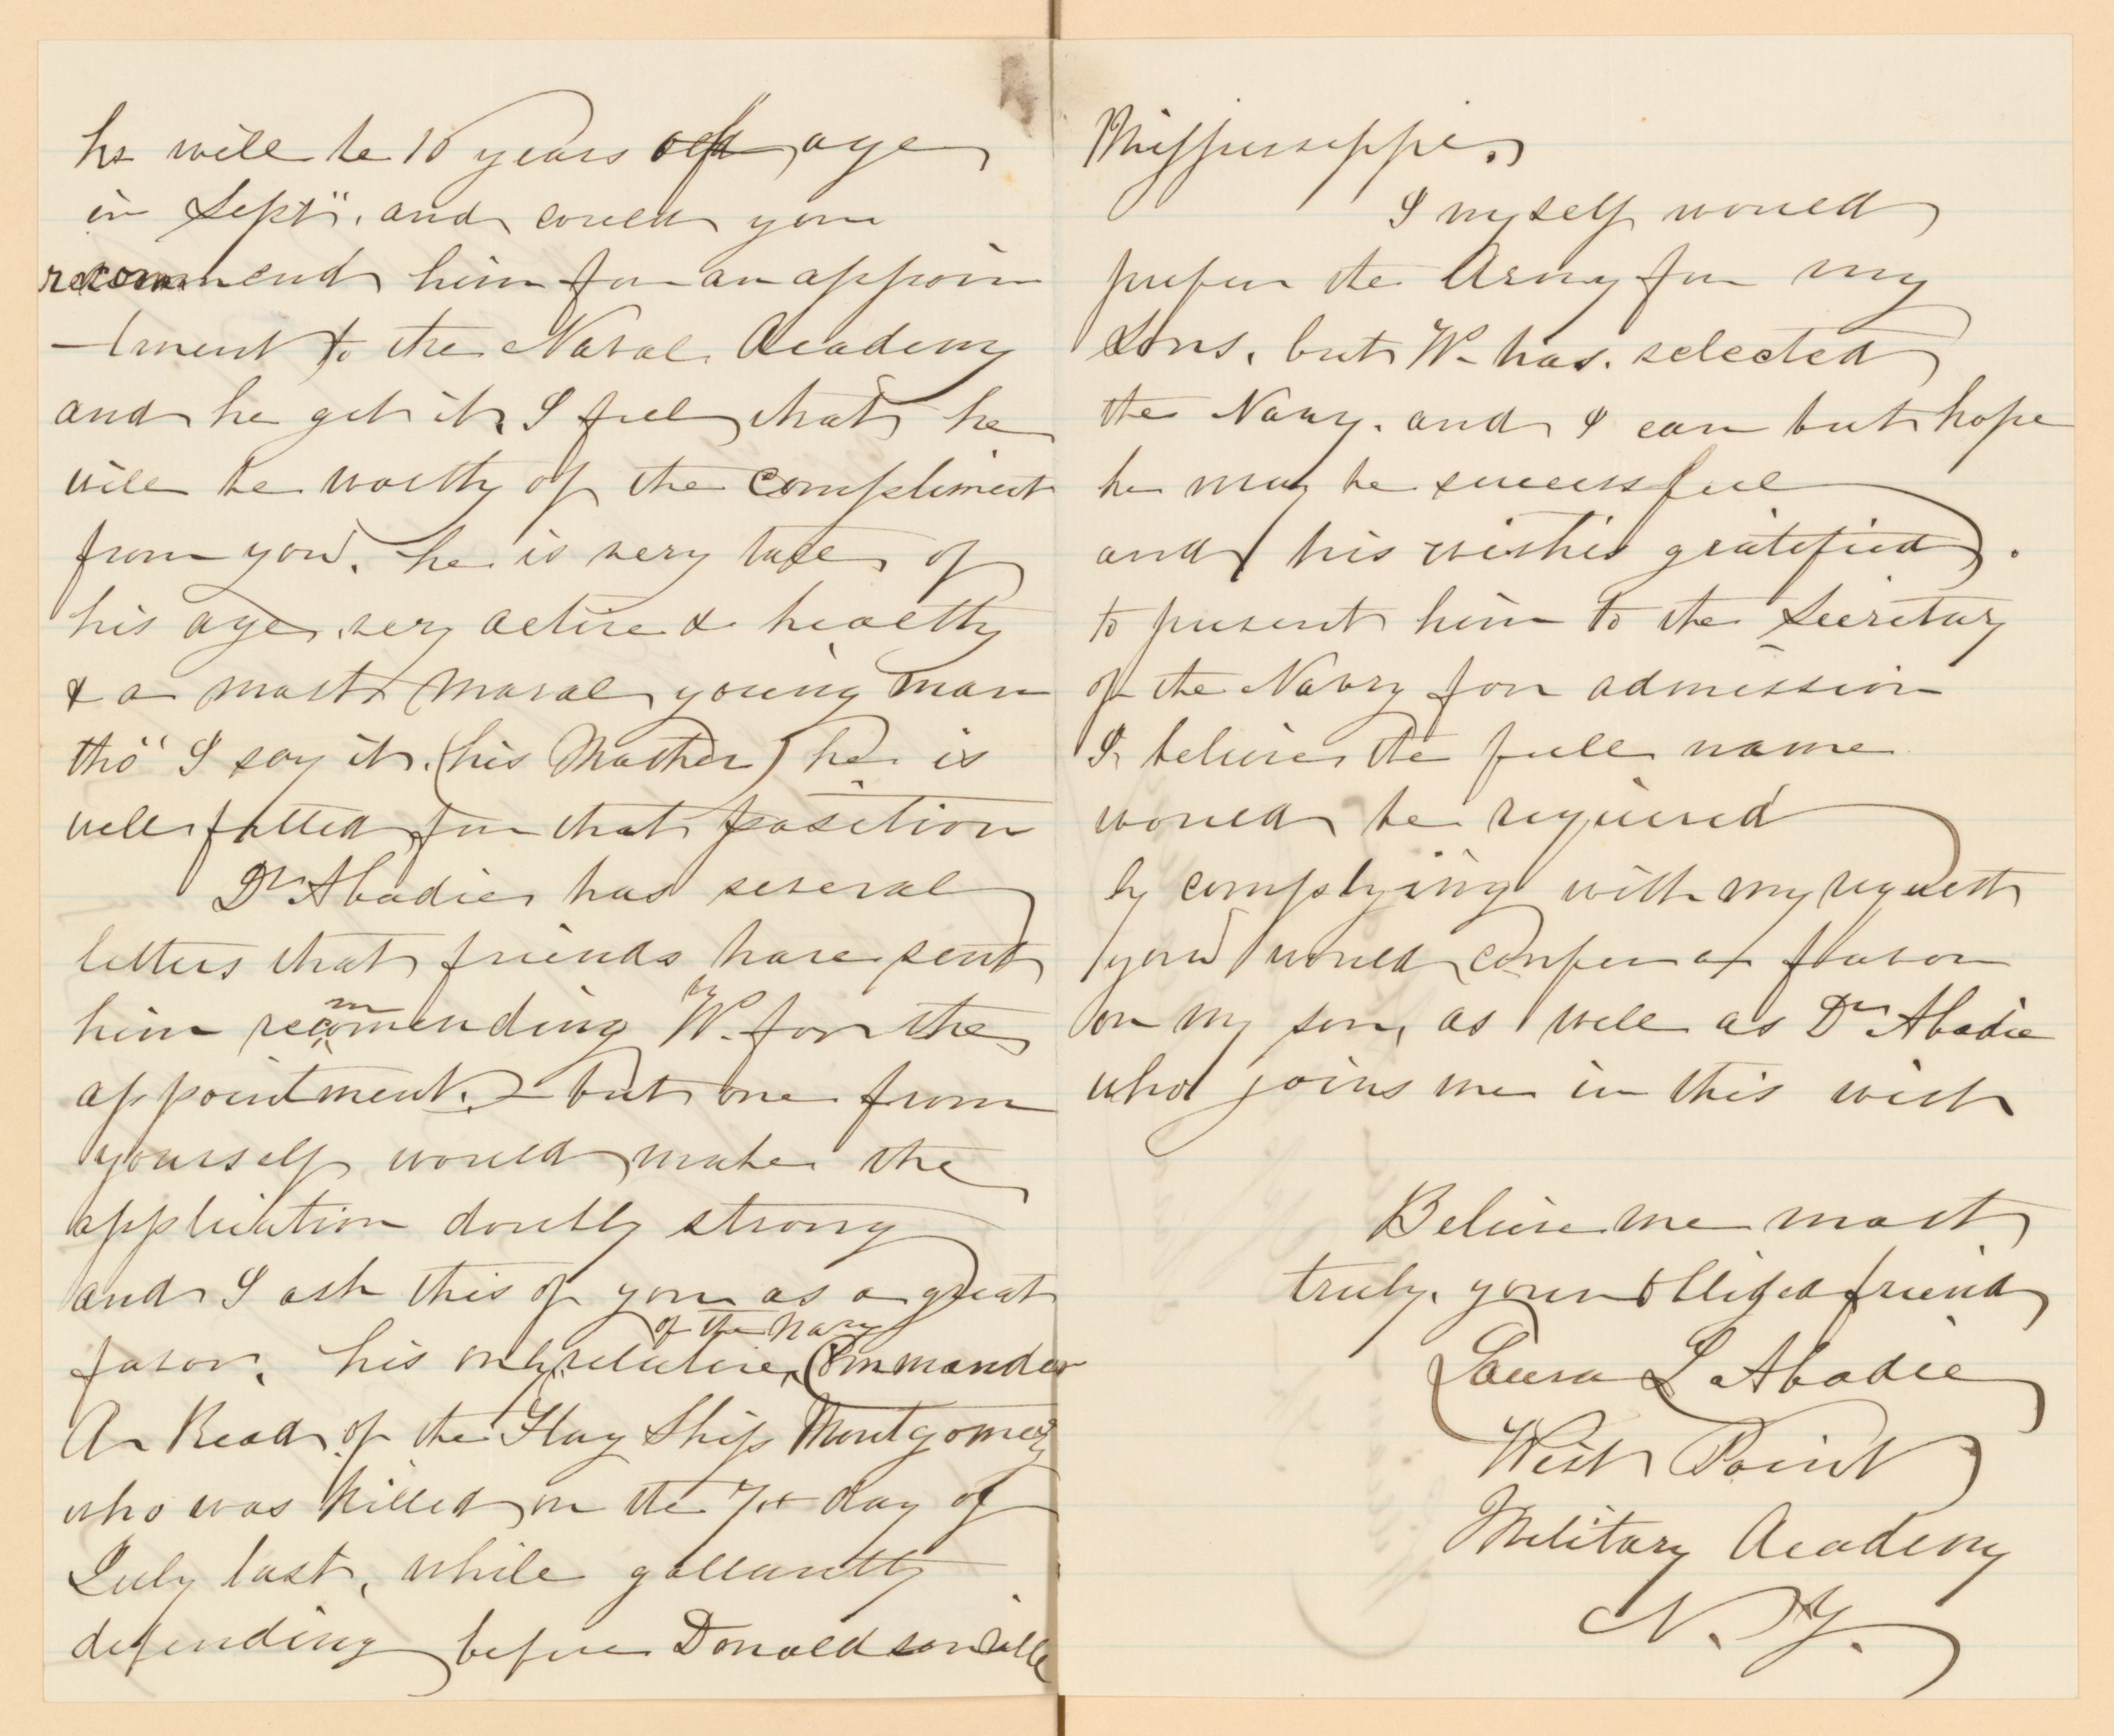 he will be 16 years of age
in Sept". and could you
recommend him for an appoin
-tment to the Naval Academy
and he get it, I feel that he
will be worthy of the compliment
from you. he is very tall of
his age, very active & healthy
& a most moral young man
tho" I say it. (his Mother) he is
well fitted for that position
Dr Abadie has several
letters that friends have sent
him recommending my W. for the
appointment. but one from
yourself would make the
application doubly strong
and I ask this of you as a great
favor. his only relative, of the Navy Commander
A Read of the Flag Ship Montgomery
who was killed on the 7th day of
July last, while gallantly
defending before Donaldsonville
Mississippi.
I myself would
prefer the Army for my
Sons, but W- has. selected
the Navy. and I can but hope
he may be successful
and his wishes gratified.
to present him to the Secretary
of the Navy for admission
I believe the full name
would be required
by complying with my request
you would confer a favor
on my son, as well as Dr Abadie
who joins me in this wish
Believe me most
truly. your obliged friend
Laura L Abadie
West Point
Military Academy
N. Y.